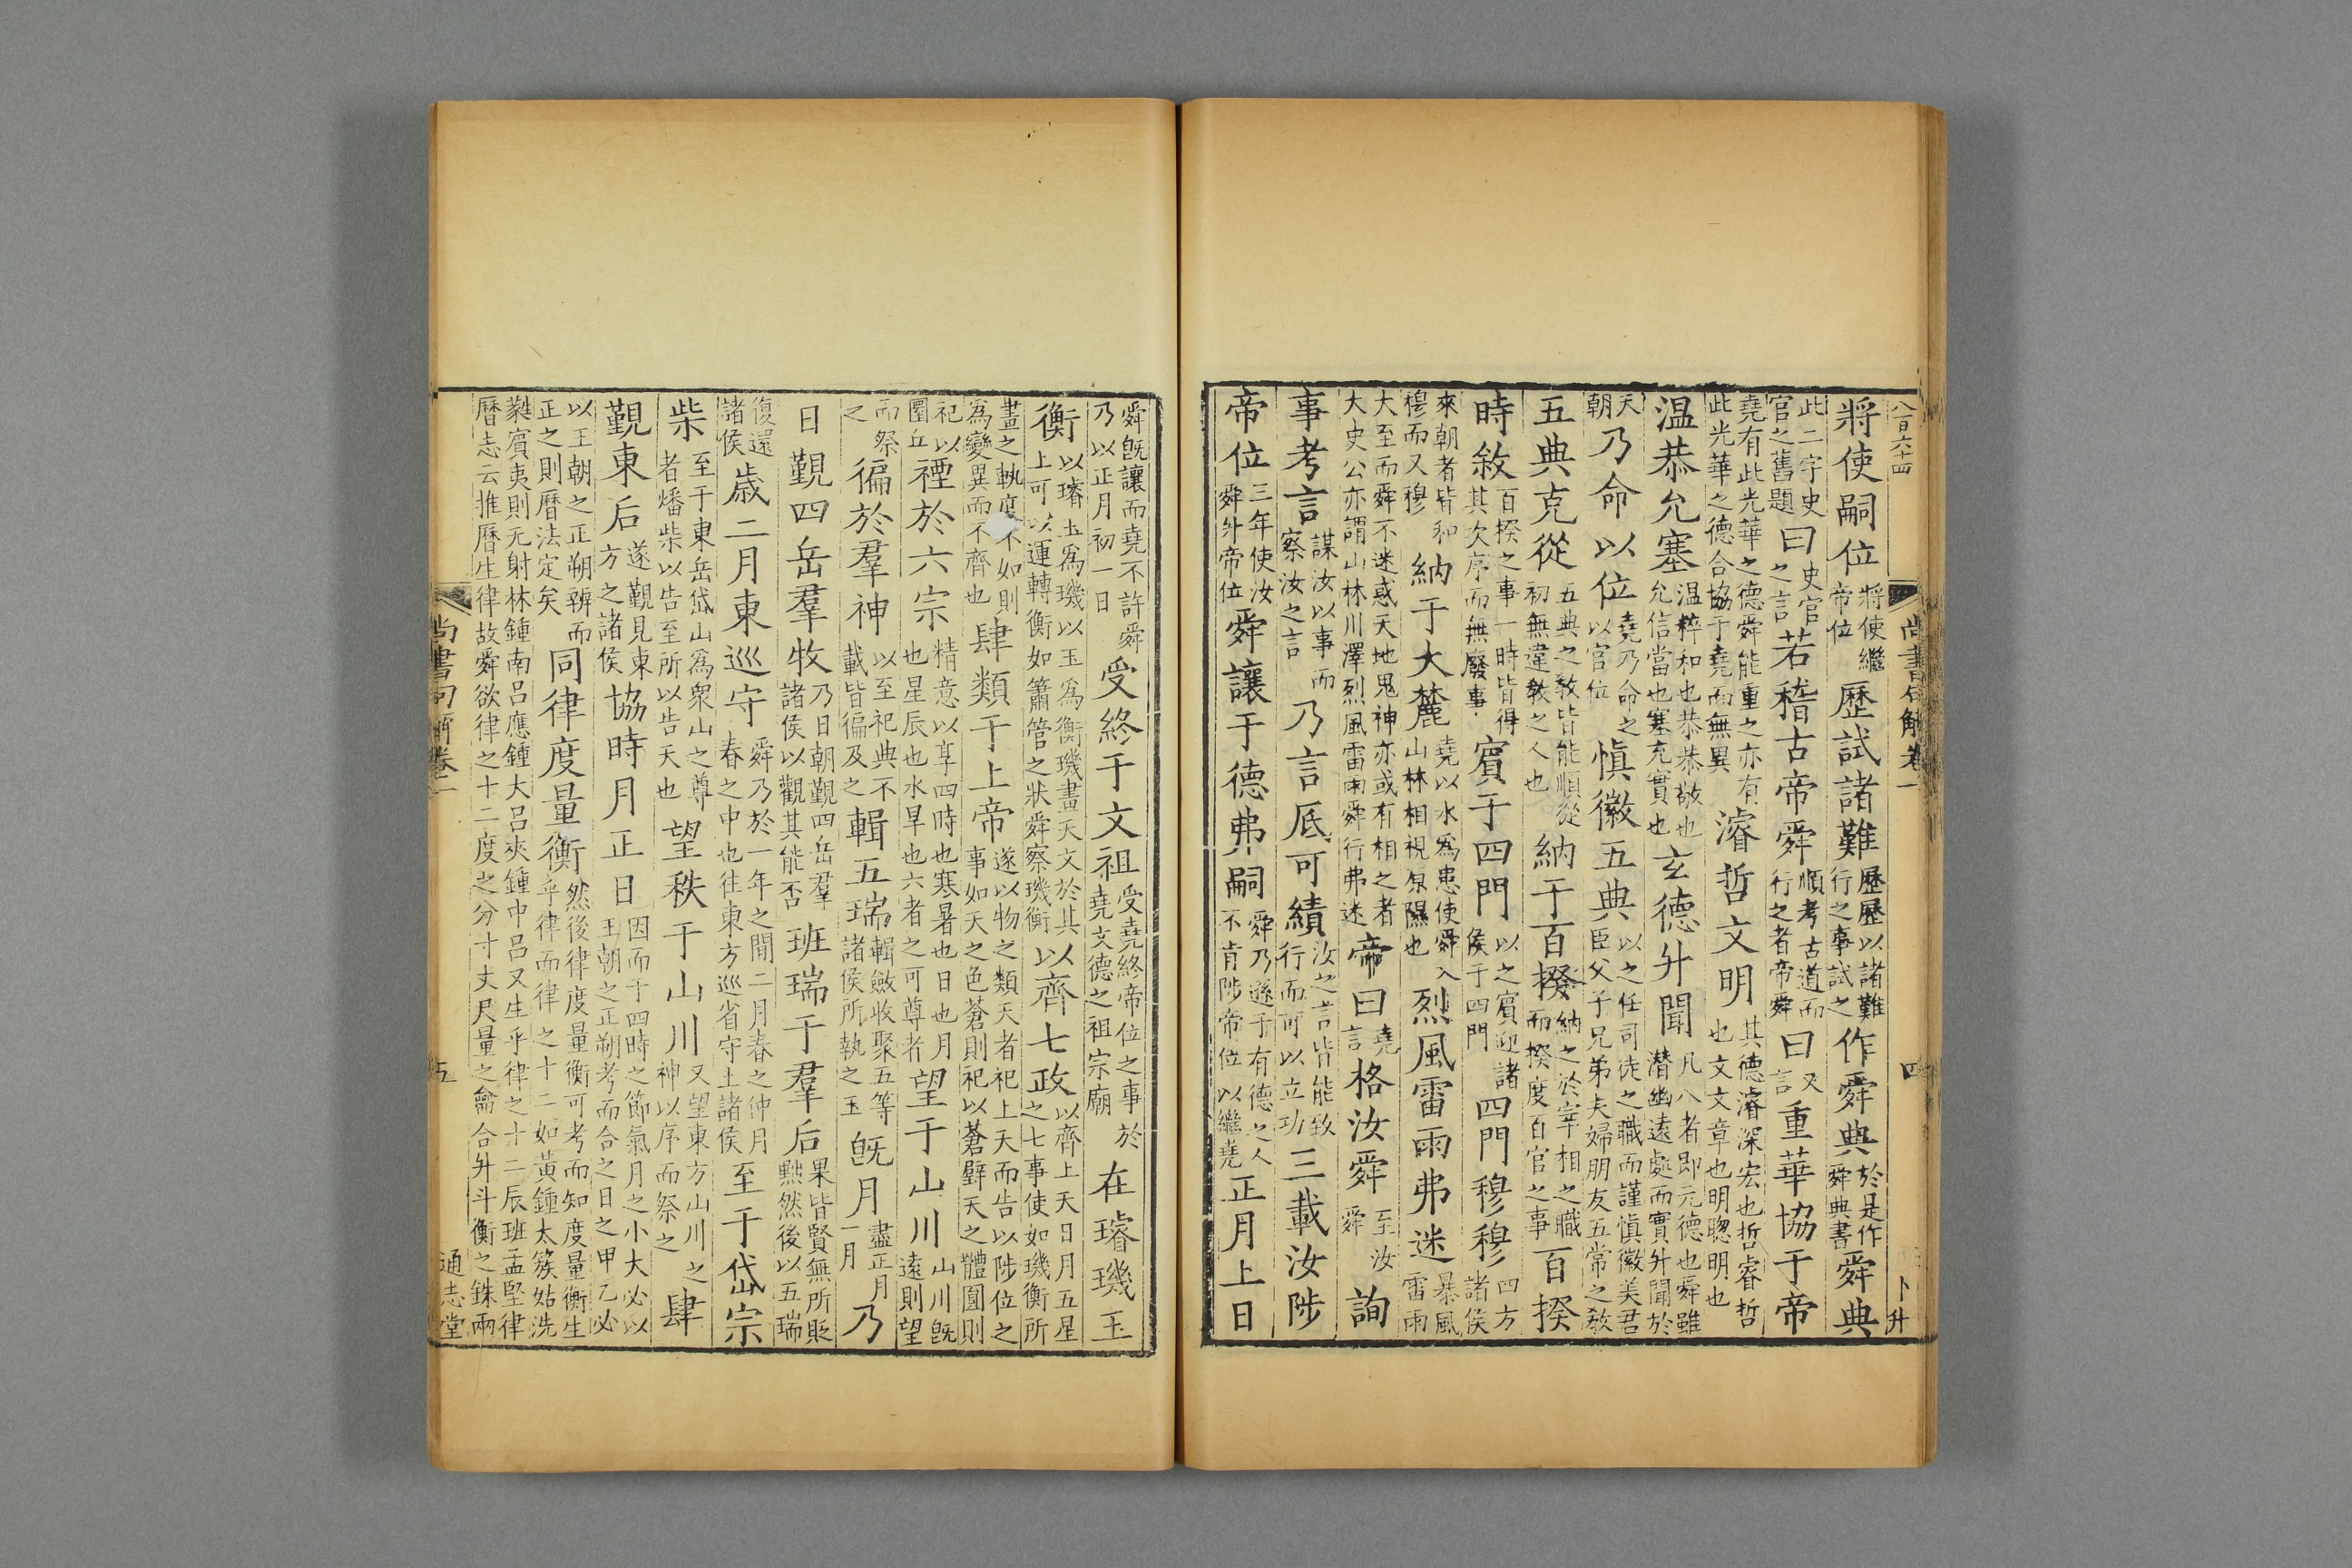 八百六十四
尚書句解卷一
四
卜升
將使嗣位將使繼帝位歷試諸難歷歷以諸難行之事試之作舜典於是作舜典書舜典
此二字史官之舊題曰史官之言若稽古帝舜順考古道而行之者帝舜曰又言重華協于帝
堯有此光華之德舜能重之亦有此光華之德合協于堯而無異濬哲文明其德濬深宏也哲睿哲也文文章也明聰明也
温恭允塞温粹和也恭恭敬也允信當也塞充實也玄德升聞凡八者即元德也舜雖潛幽遠處而實升聞於
天朝乃命以位堯乃命之以官位慎徽五典以之任司徒之職而謹慎徽美君臣父子兄弟夫婦朋友五常之敎
五典克從五典之敎皆能順從初無違敎之人也納于百揆納之於宰相之職而揆度百官之事百揆
時敘百揆之事一時皆得其次序而無廢事賓于四門以之賓迎諸侯于四門四門穆穆四方諸侯
來朝者皆和穆而又穆納于大麓堯以水為患使舜入山林相視原隰也烈風雷雨弗迷暴風雷雨
大至而舜不迷惑天地鬼神亦或有相之者大史公亦謂山林川澤烈風雷雨舜行弗迷帝曰堯言格汝舜至汝舜詢
事考言謀汝以事而察汝之言乃言厎可績汝之言皆能致行而可以立功三載汝陟
帝位三年使汝舜升帝位舜讓于德弗嗣舜乃遜于有德之人不肯陟帝位以繼堯正月上日
舜旣讓而堯不許舜乃以正月初一日受終于文祖受堯終帝位之事於堯文德之祖宗廟在璿璣玉
衡以璿玉爲璣以玉爲衡璣畫天文於其上可以運轉衡如簫管之狀舜察璣衡以齊七政以齊上天日月五星之七事使如璣衡所
畫之執度不如則爲變異而不齊也肆類于上帝遂以物之類天者祀上天而告以陟位之事如天之色蒼則祀以蒼璧天之體圓則
祀以圜丘禋於六宗精意以享四時也寒暑也日也月也星辰也水旱也六者之可尊者望于山川山川旣遠則望
而祭之徧於羣神以至祀典不載皆徧及之輯五瑞輯斂收聚五等諸侯所執之玉旣月盡正月一月乃
日覲四岳羣牧乃日朝覲四岳羣諸侯以觀其能否班瑞于羣后果皆賢無所貶黜然後以五瑞
復還諸侯歲二月東巡守舜乃於一年之間二月春之仲月春之中也往東方巡省守土諸侯至于岱宗
柴至于東岳岱山爲衆山之尊者燔柴以告至所以告天也望秩于山川又望東方山川之神以序而祭之肆
覲東后遂覲見東方之諸侯協時月正日因而于四時之節氣月之小大必以王朝之正朔考而合之日之甲乙必
以王朝之正朔辨而正之則曆法定矣同律度量衡然後律度量衡可考而知度量衡生乎律而律之十二如黃鍾太簇姑洗
蕤賓夷則无射林鍾南呂應鍾大呂夾鍾中呂又生乎律之十二辰班孟堅律曆志云推曆生律故舜欲律之十二度之分寸丈尺量之龠合升斗衡之銖兩
尚書句解卷一
五
通志堂